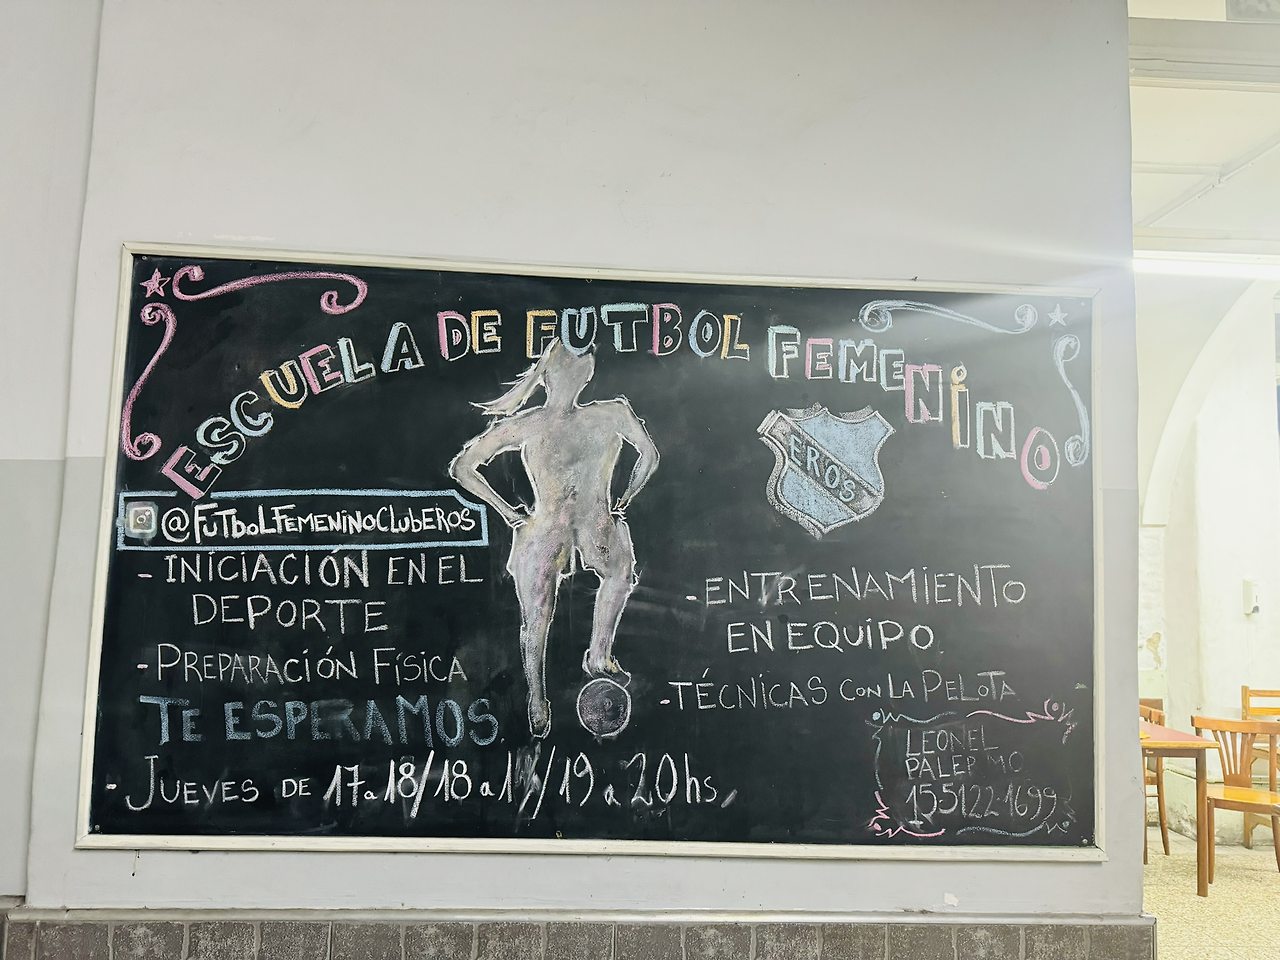 ESCUELA DE FUTBOL FEMENINO
EROS
@FUTBOLFEMENINOCLUBEROS
- INICIACIÓN EN EL
DEPORTE
- PREPARACIÓN FÍSICA
TE ESPERAMOS
- JUEVES DE 17 a 18/18 a 19/19 a 20hs,
- ENTRENAMIENTO
EN EQUIPO.
- TÉCNICAS CON LA PELOTA
LEONEL
PALERMO
155122-1699